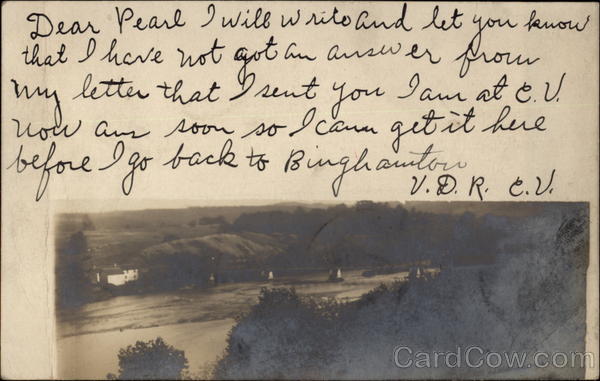 Dear Pearl I will write and let you know
that I have not got an answer from
my letter that I sent you I am at E.V.
now ans soon so I cann get it here
before I go back to Binghamton
V. D. R. E.V.
CardCow.com